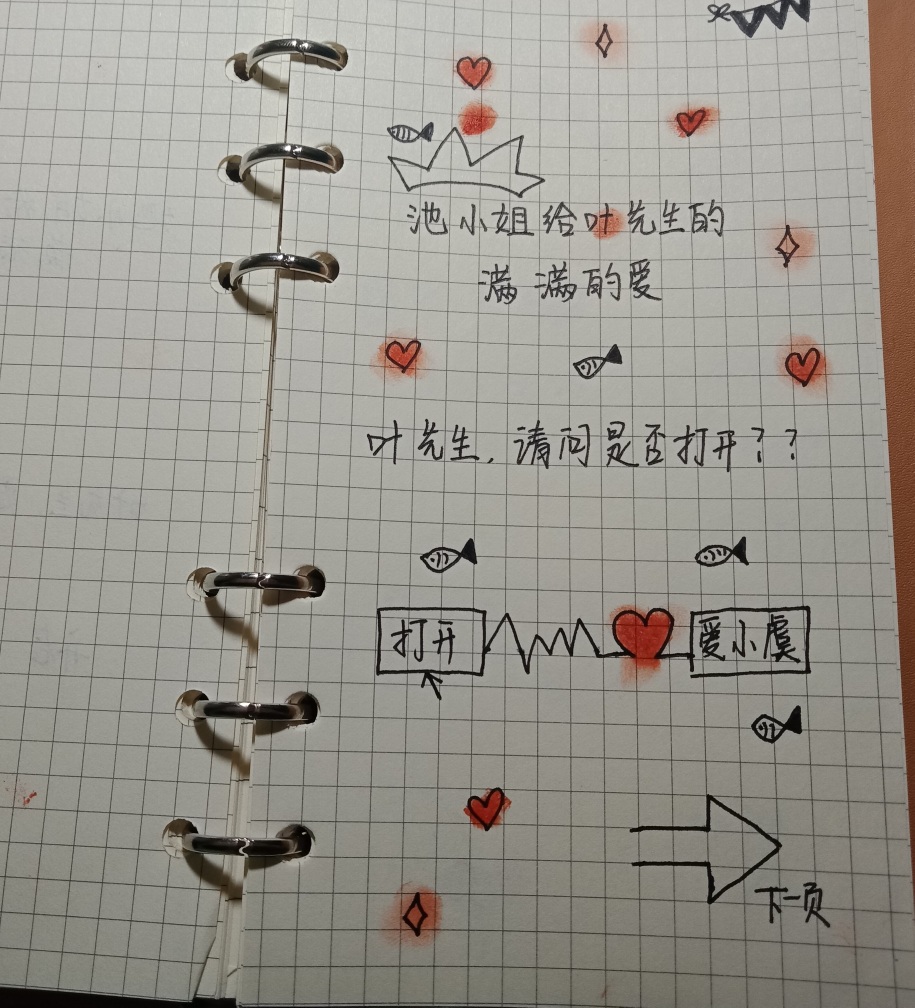 池小姐给叶先生的
满满的爱
叶先生，请问是否打开？？
打开
爱小虞
下一页